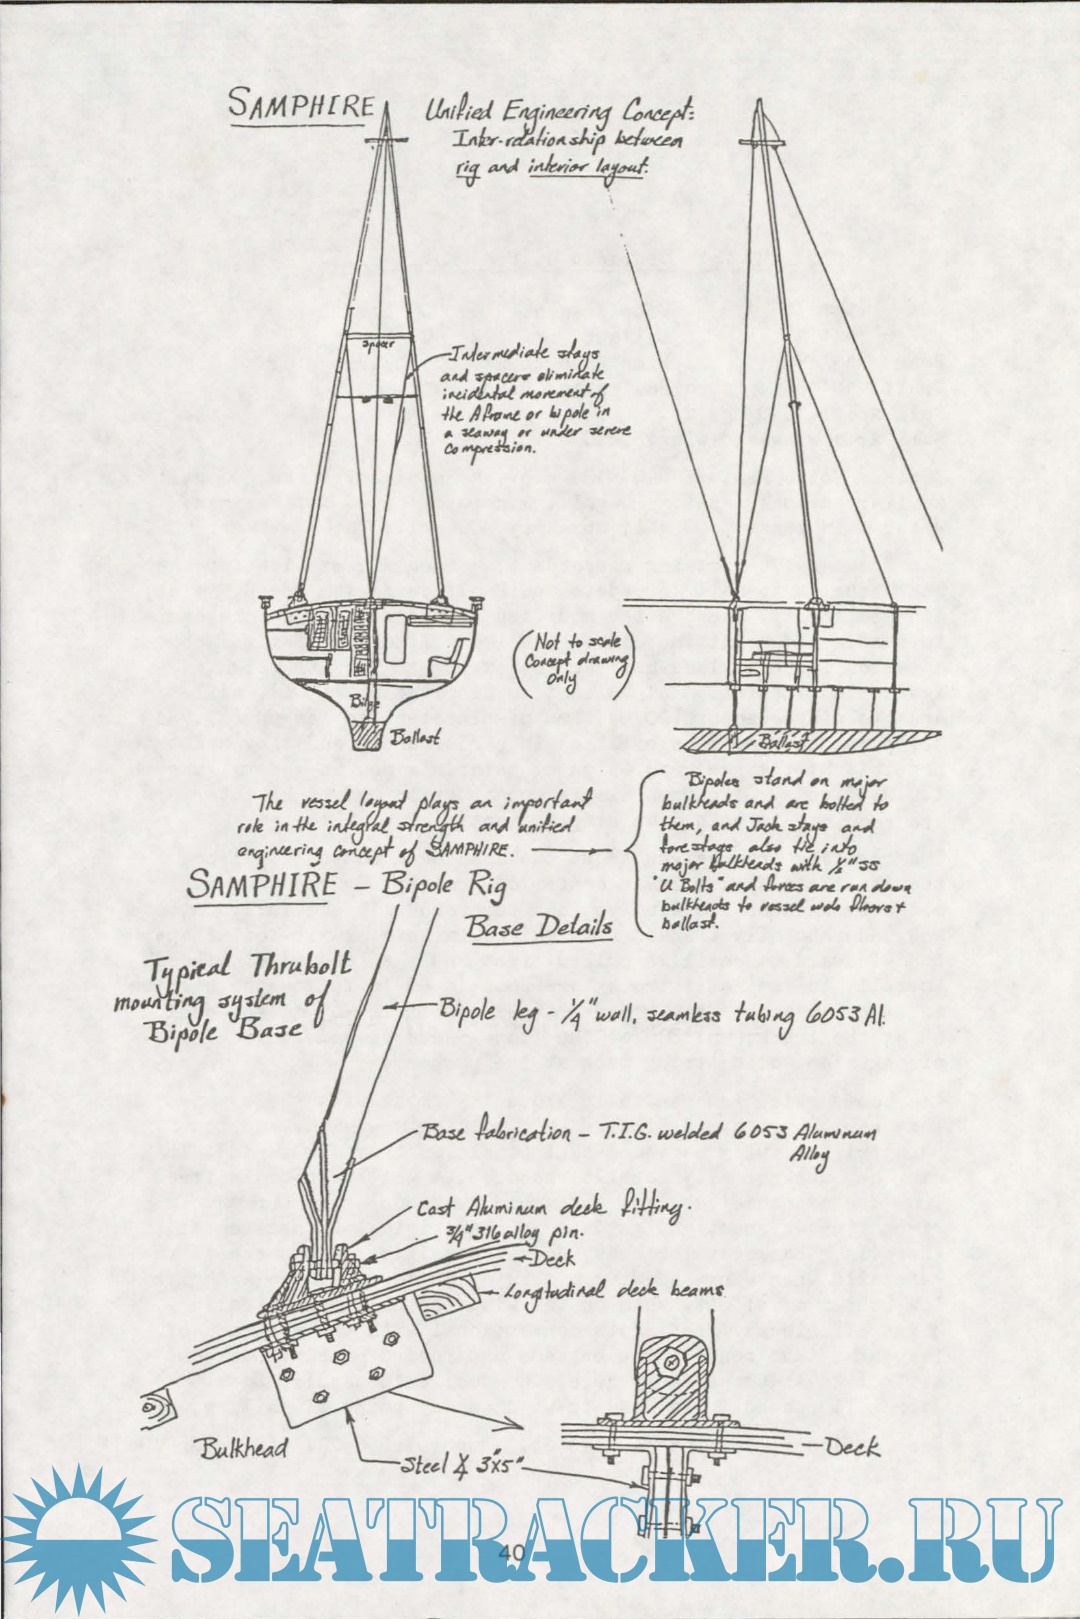 SAMPHIRE
Unified Engineering Concept:
Inter-relationship between
rig and interior layout.
Spacer
Intermediate stays
and spacers eliminate
incidental movement of
the A frame or bipole in
a seaway or under severe
compression.
(Not to scale
Concept drawing
Only)
Bilge
Ballast
Ballast
The vessel layout plays an important
role in the integral strength and unified
engineering concept of SAMPHIRE.
Bipoles stand on major
bulkheads and are bolted to
them, and Jack stays and
forestays also tie into
major bulkheads with ½" SS
"U Bolts" and forces are run down
bulkheads to vessel floors +
ballast.
SAMPHIRE – Bipole Rig
Base Details
Typical Thrubolt
mounting system of
Bipole Base
Bipole leg - ¼" wall, seamless tubing 6053 Al.
Base fabrication – T.I.G. welded 6053 Aluminum
Alloy
Cast Aluminum deck fitting.
¾" 316 alloy pin.
Deck
Longitudinal deck beams
Bulkhead
Steel ∡ 3"x5"
Deck
40
SEATRACKER.RU